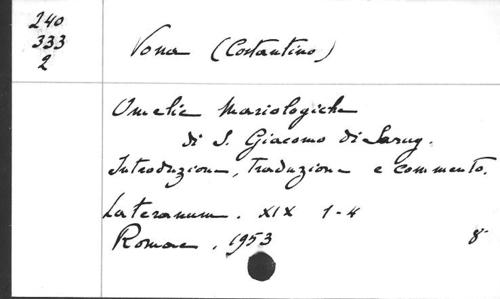 240
333
2
Vona (Costantino)
Omelie Mariologiche
di S. Giacomo di Sarug.
Introduzione, traduzione e commento.
Lateranum. XIX 1-4
Romae, 1953 8°